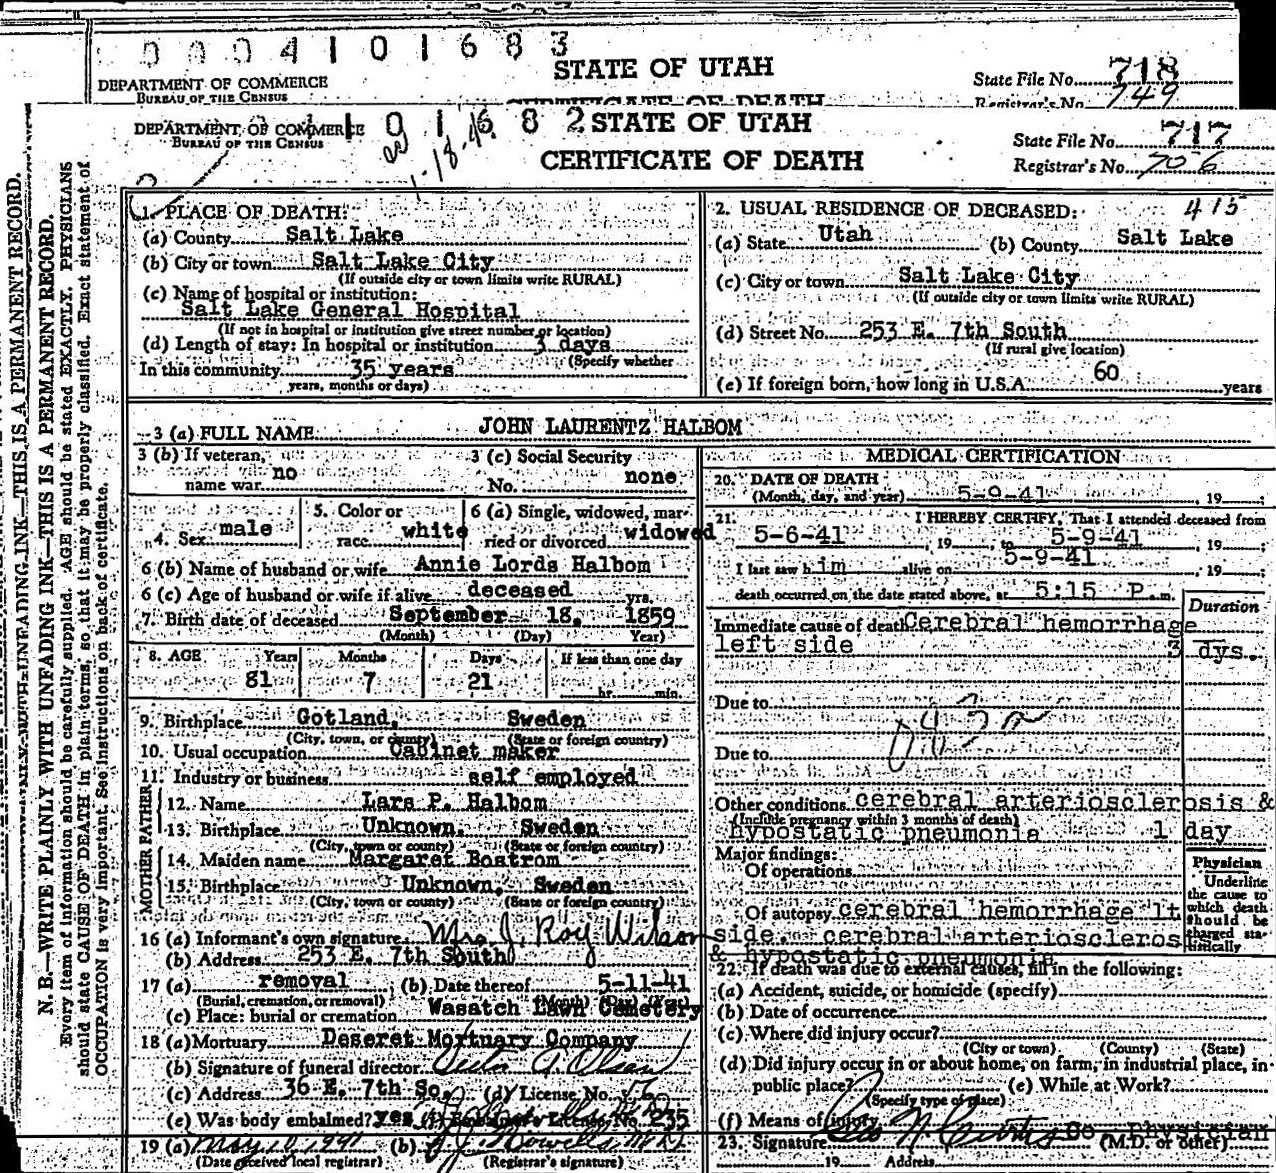 0004101683
STATE OF UTAH
DEPARTMENT OF COMMERCE
BUREAU OF THE CENSUS
State File No. 718
Registrar's No. 749
CERTIFICATE OF DEATH
DEPARTMENT OF COMMERCE
BUREAU OF THE CENSUS
STATE OF UTAH
CERTIFICATE OF DEATH
State File No. 717
Registrar's No. 706
N. B.—WRITE PLAINLY WITH UNFADING INK—THIS IS A PERMANENT RECORD.
Every item of information should be carefully supplied. AGE should be stated EXACTLY. PHYSICIANS
should state CAUSE OF DEATH in plain terms, so that it may be properly classified. Exact statement of
OCCUPATION is very important. See instructions on back of certificate.
1. PLACE OF DEATH:
(a) County Salt Lake
(b) City or town Salt Lake City
(If outside city or town limits write RURAL)
(c) Name of hospital or institution:
Salt Lake General Hospital
(If not in hospital or institution give street number or location)
(d) Length of stay: In hospital or institution 3 days
(Specify whether
In this community 35 years
years, months or days)
2. USUAL RESIDENCE OF DECEASED: 415
(a) State Utah (b) County Salt Lake
(c) City or town Salt Lake City
(If outside city or town limits write RURAL)
(d) Street No. 253 E. 7th South
(If rural give location)
(e) If foreign born, how long in U.S.A. 60 years
3 (a) FULL NAME JOHN LAURENTZ HALBOM
3 (b) If veteran, name war no
3 (c) Social Security No. none
4. Sex male
5. Color or race white
6 (a) Single, widowed, married or divorced widowed
6 (b) Name of husband or wife Annie Lords Halbom
6 (c) Age of husband or wife if alive deceased yrs.
7. Birth date of deceased September 18, 1859
(Month) (Day) Year)
8. AGE Years Months Days If less than one day
81 7 21 hr. min.
9. Birthplace Gotland, Sweden
(City, town, or county) (State or foreign country)
10. Usual occupation Cabinet maker
11. Industry or business self employed
FATHER
12. Name Lars P. Halbom
13. Birthplace Unknown, Sweden
(City, town or county) (State or foreign country)
MOTHER
14. Maiden name Margaret Bostrom
15. Birthplace Unknown, Sweden
(City, town or county) (State or foreign country)
16 (a) Informant's own signature Mrs. J. Roy Wilson
(b) Address 253 E. 7th South
17 (a) removal (b) Date thereof 5-11-41
(Burial, cremation, or removal) (Month) (Day) (Year)
(c) Place: burial or cremation Wasatch Lawn Cemetery
18 (a) Mortuary Deseret Mortuary Company
(b) Signature of funeral director
(c) Address 36 E. 7th So. (d) License No. 76
(e) Was body embalmed? yes (f) Embalmer's License No. 235
19 (a) May 10, 1941 (b)
(Date received local registrar) (Registrar's signature)
MEDICAL CERTIFICATION
20. DATE OF DEATH
(Month, day, and year) 5-9-41, 19
21. I HEREBY CERTIFY, That I attended deceased from
5-6-41, 19 to 5-9-41, 19
I last saw him alive on 5-9-41, 19
death occurred on the date stated above, at 5:15 P.m.
Duration
Immediate cause of death Cerebral hemorrhage
left side 3 dys.
Due to
Due to
Other conditions cerebral arteriosclerosis &
(Include pregnancy within 3 months of death)
hypostatic pneumonia 1 day
Major findings:
Of operations
Physician
Underline
the cause to
which death
should be
charged sta-
tistically
Of autopsy cerebral hemorrhage lt
side, cerebral arterioscleros
& hypostatic pneumonia
22. If death was due to external causes, fill in the following:
(a) Accident, suicide, or homicide (specify)
(b) Date of occurrence
(c) Where did injury occur?
(City or town) (County) (State)
(d) Did injury occur in or about home, on farm, in industrial place, in
public place? (e) While at Work?
(Specify type of place)
(f) Means of injury
23. Signature Co. Physician
(M.D. or other)
19 Address